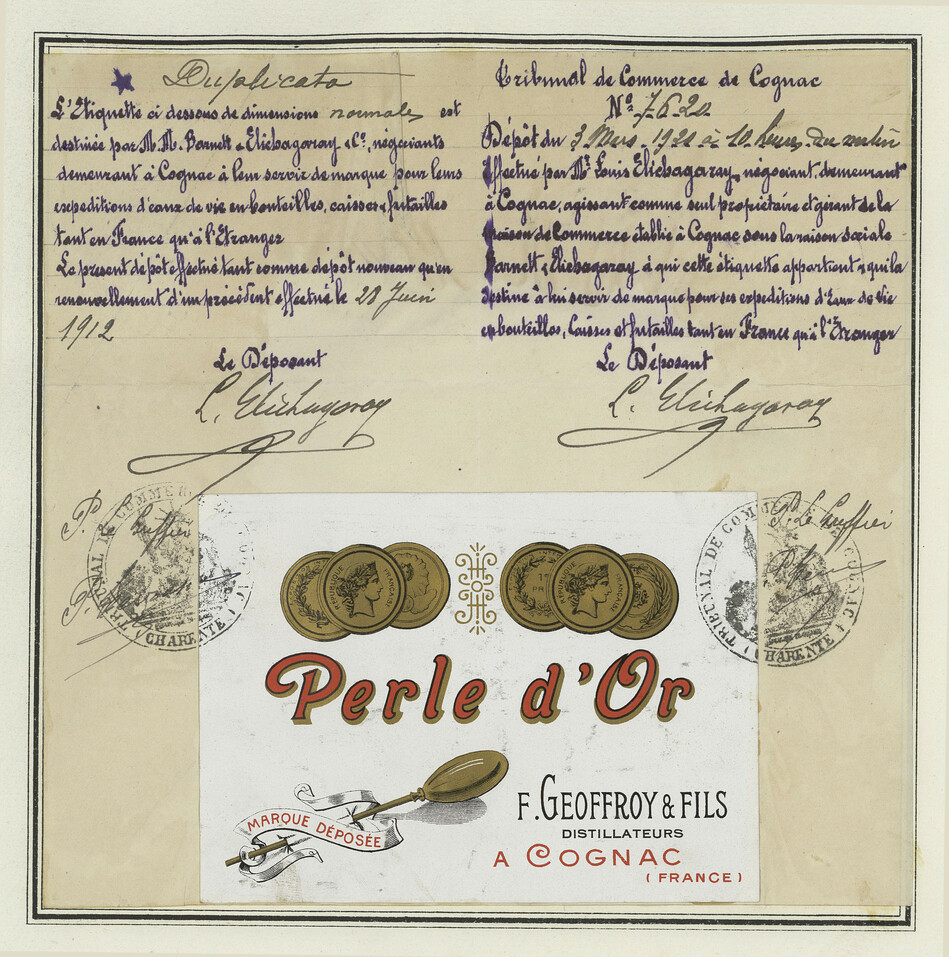 Duplicata
L'Etiquette ci dessous de dimensions normales est
destinée par M.M. Barnett & Elichagaray & Cº, négociants
demeurant à Cognac à leur servir de marque pour leurs
expeditions d'eaux de vie en bouteilles, caisses & futailles
tant en France qu'à l'Etranger
Le present dépôt effectué tant comme dépôt nouveau qu'en
renouvellement d'un précédent effectué le 28 Juin
1912
Le Déposant
L. Elichagaray
Tribunal de Commerce de Cognac
Nº 7620
Dépôt du 3 Mars 1921 à 10 heures du matin
Effectué par Mr Louis Elichagaray, négociant, demeurant
à Cognac, agissant comme seul propriétaire et gérant de la
Maison de Commerce établie à Cognac sous la raison sociale
Barnett & Elichagaray à qui cette étiquette appartient & qui la
destine à lui servir de marque pour ses expeditions d'Eaux de Vie
en bouteilles, Caisses et futailles tant en France qu'à l'Etranger
Le Déposant
L. Elichagaray
P. Le Greffier
TRIBUNAL DE COMMERCE
CHARENTE
P. Le Greffier
TRIBUNAL DE COMMERCE DE COGNAC
CHARENTE
REPUBLIQUE FRANÇAISE
REPUBLIQUE FRANÇAISE
Perle d'Or
MARQUE DÉPOSÉE
F. GEOFFROY & FILS
DISTILLATEURS
A COGNAC
(FRANCE)